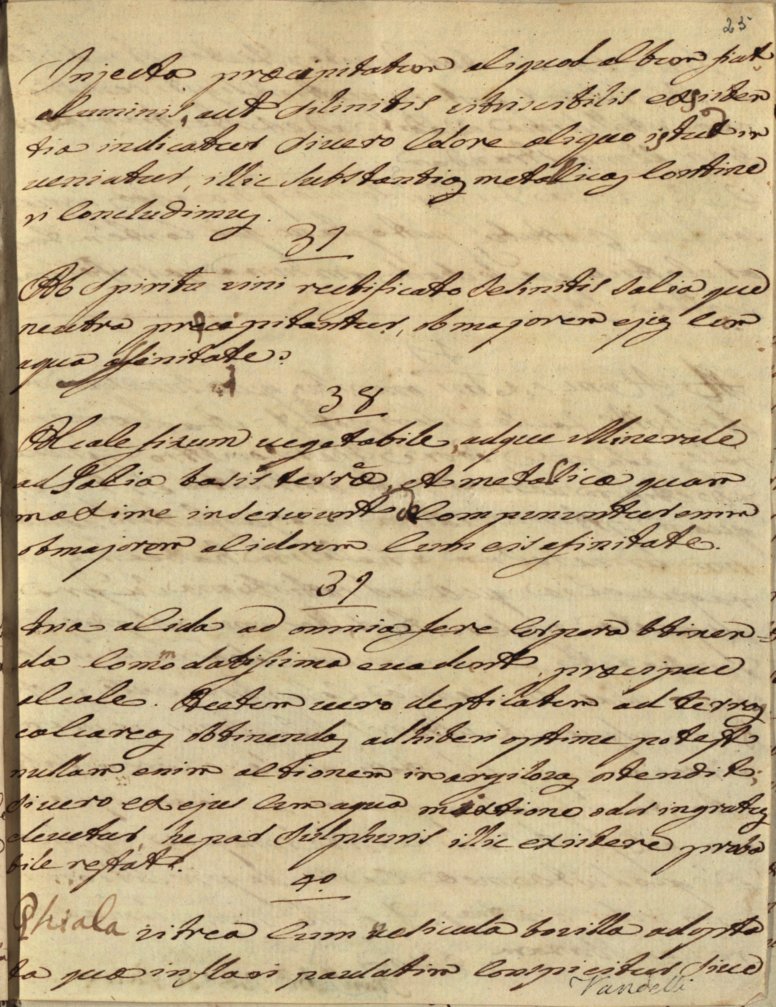 25
Injecta præcipitatum aliquod album fiat
aluminis, aut Selinitis vitriscibilis existen
tia indicatur sivero Colore aliquo istud in
veniatur, illic substantias metallicas Contine
ri Concludimus.
37
Ab spiritu vini rectificato Selinitis Salia que
neutra precipitantur, ob majorem ejus Cum
aqua afinitate.
38
Alcale fixum vegetabile, adque Minerale
ad Salia basis terræ, et metalicæ quam
maxime inserviunt Componuntur enim
ob majorem acidorum Cum eis afinitate.
39
tria acida ad omnia fere Corpora obtinen=
da Commodatissima evadunt, præcipue
alcale. Acetum vero destilatum ad terras
calcareas obtinendas adhiberi optime potest
nullam enim actionem in argilozas ostendit;
sivero ex ejus Cum aqua mixtione odor ingratus
elevetur, hepar Sulphuris illic existere proba
bile restat.
40
Phiala vitrea Cum vesicula bovilla adopta
ta quæ inflari paulatim Conspicitur, sive
Vandelli